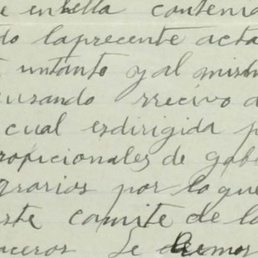 e enbella contenid
do laprecente acta
untanto y al mism
cuzando rrecivo a
cual esdirigida p
ropicionales de gob
grarios por lo que
ste comite de la
aceros Se